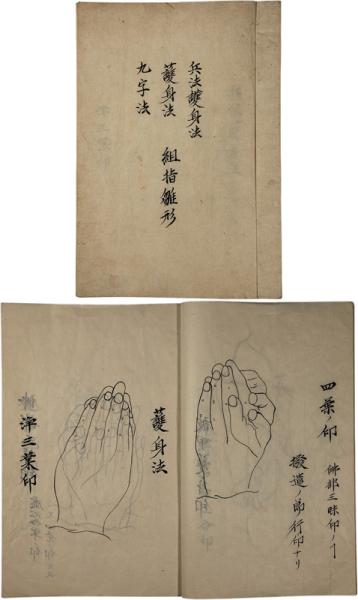 兵法護身法
護身法
九字法
組指雛形
四葉ノ印
佛部三昧印ノ
撥遣ノ節行印ナリ
護身法
浄三業印